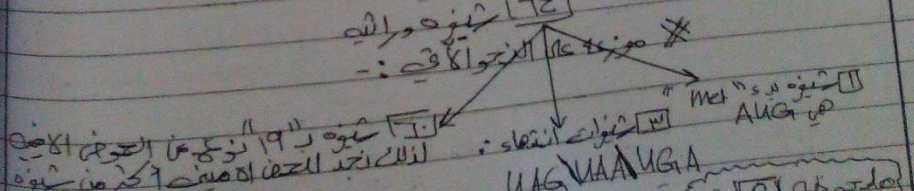 ٦٤ شيفره وراثيه
* موزعه على النحو الآتي :-
١ شيفره بدء "Met"
هي AUG
٣ شيفرات انتهاء :
UAG \ UAA \ UGA
٦٠ شيفره لـ "١٩" نوع من الحمض الاميني
لذلك نجد للحمض الاميني أكثر من شيفره